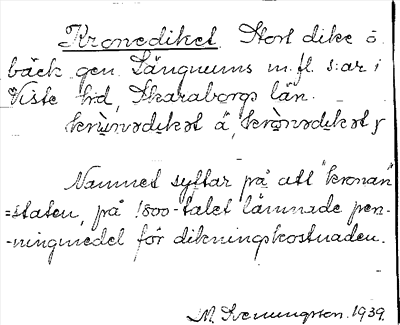 Kronediket. Stort dike o
bäck gen. Längnums m. fl. s:ar i
Viste hd, Skaraborgs län.
krùnədikət ä, krònədikət y
Namnet syftar på att "kronan"
=staten, på 1800-talet lämnade pen-
-ningmedel för dikningskostnaden.
M. Svenungsson. 1939.